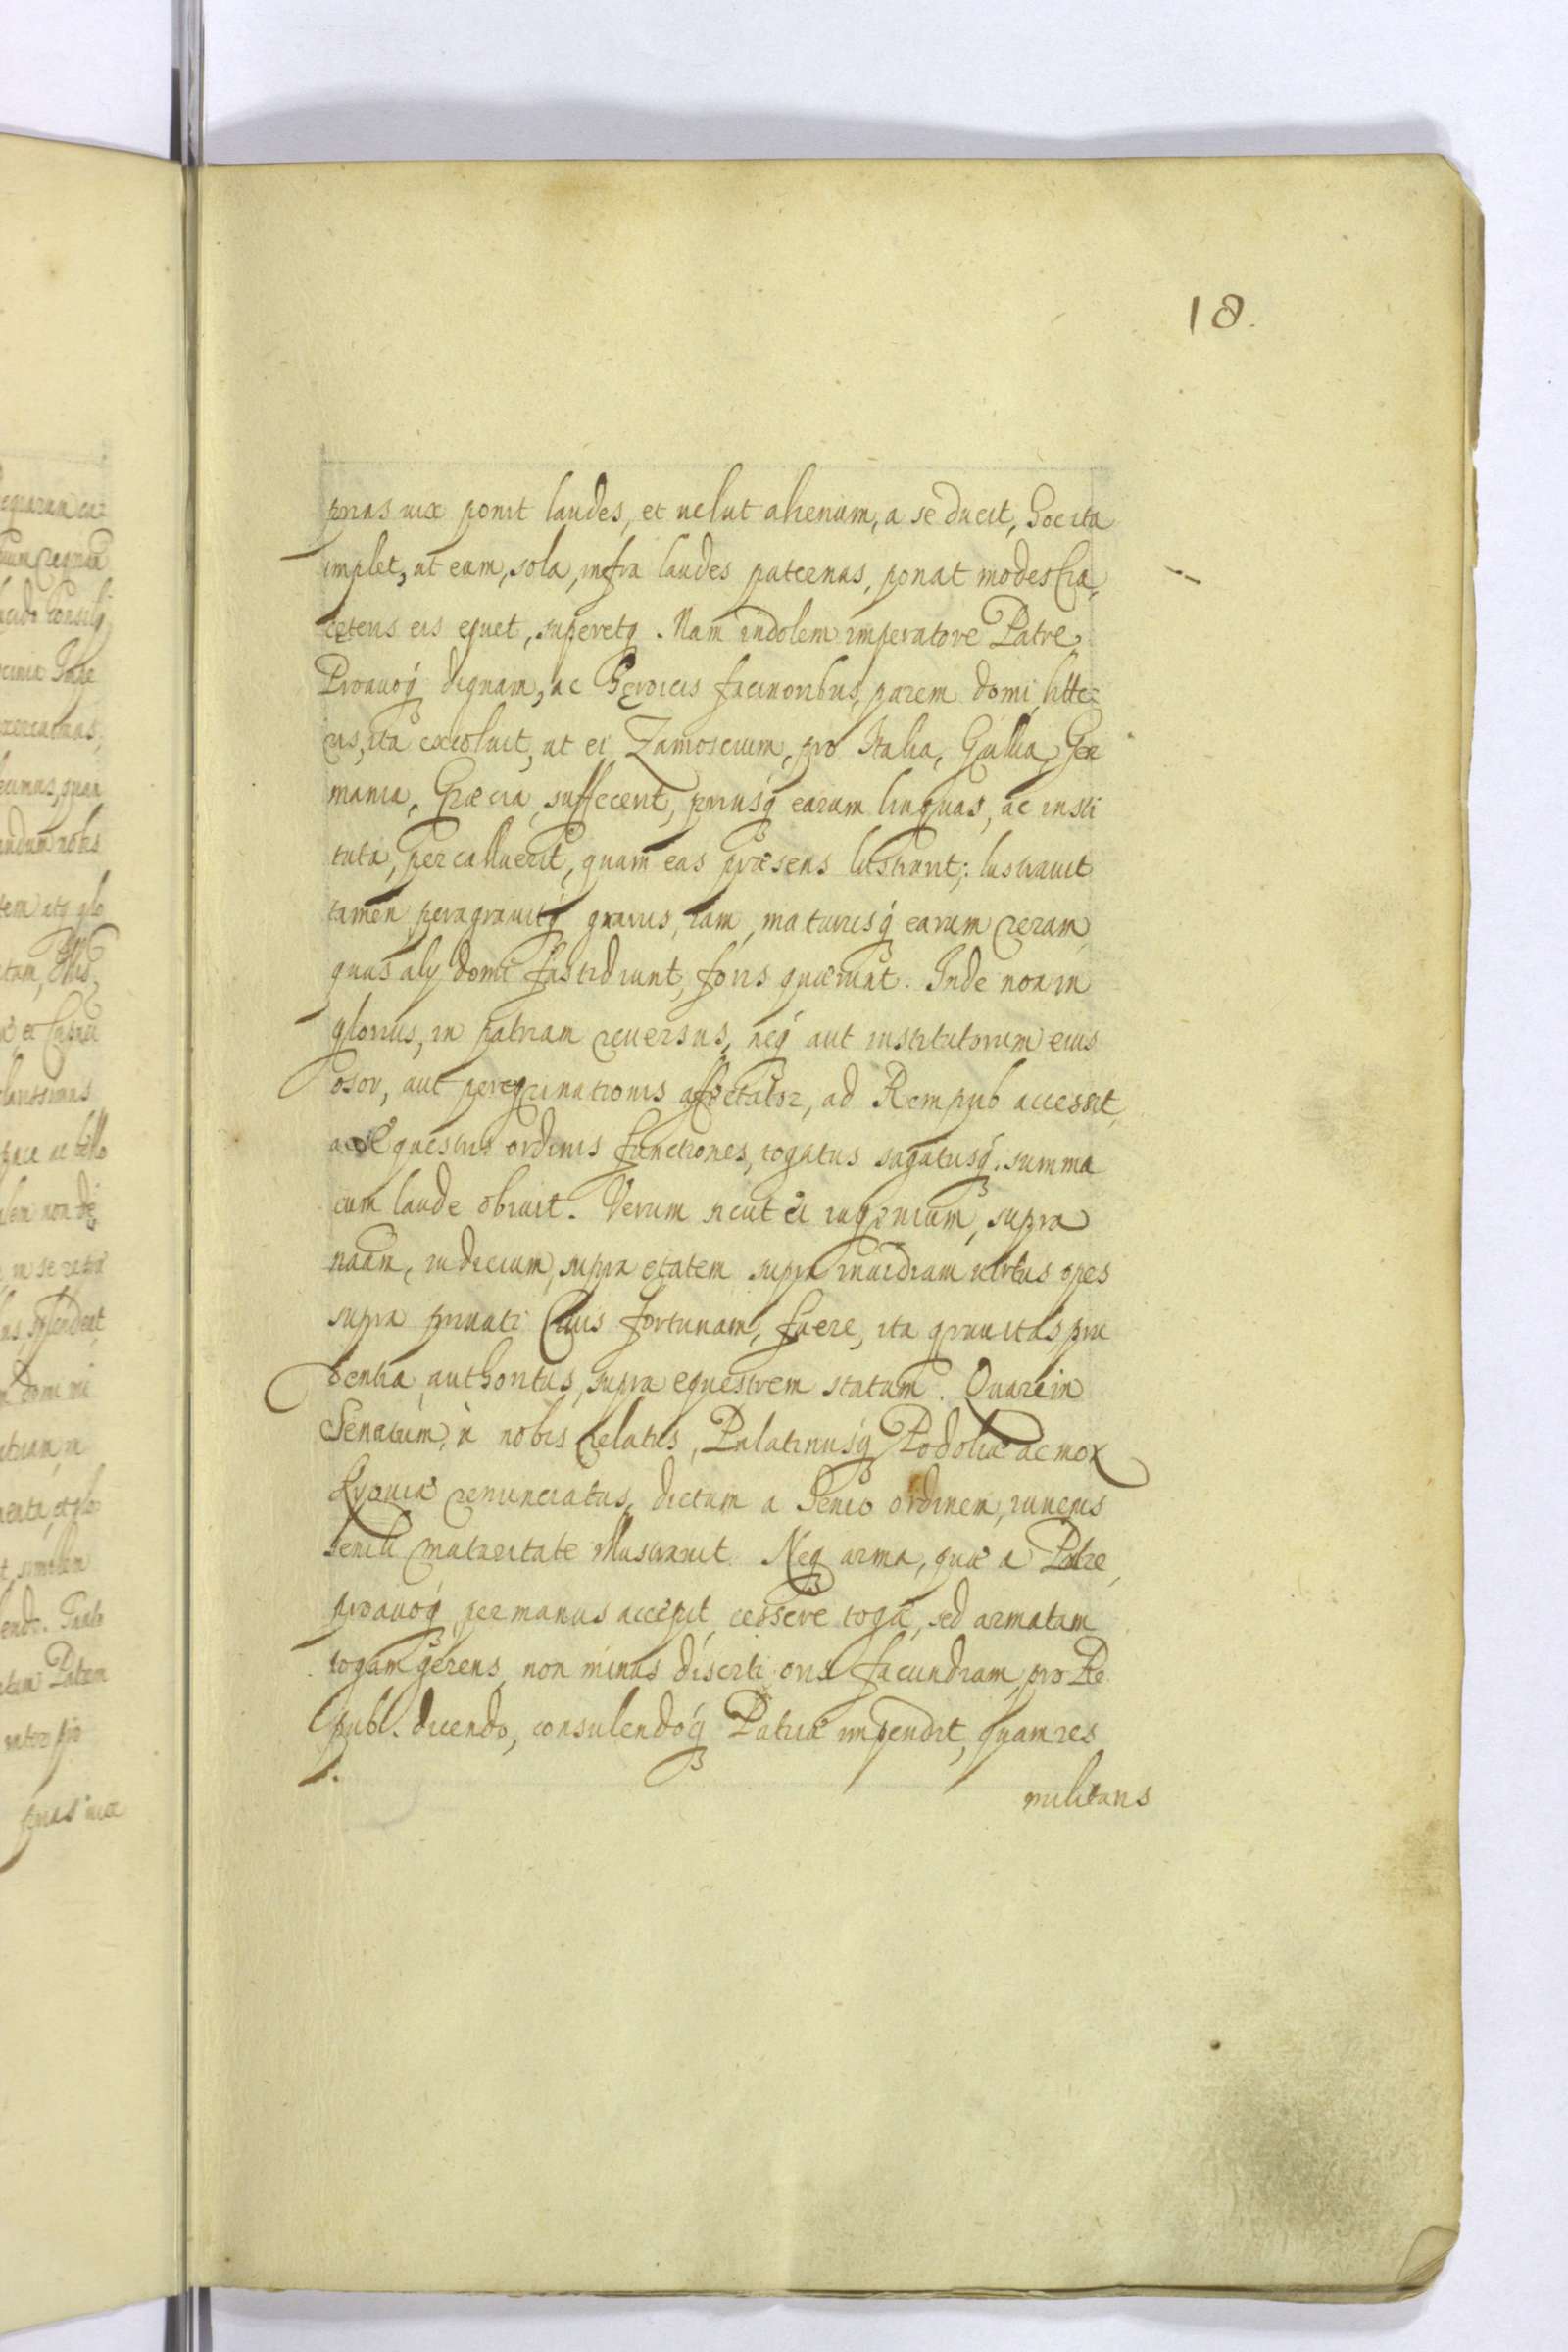 18.
prias uix ponit laudes, et uelut alienum, a se ducit, hoc ita
implet, ut eam, sola, infra laudes paternas, ponat modestia,
ceteris eis equet, superetq. Nam indolem imperatore Patre
Proauoq́ dignam, ac Heroicis facinoribus parem domi litte
ris, ita excoluit, ut ei Zamoscium, pro Italia, Gallia, Ger
mania, Græcia, suffecerit, priusq́ earum linguas, ac insti
tuta, percalluerit, quam eas præsens lustrarit; lustrauit
tamen peragrauitq́ gnarus iam, maturusq́ earum rerum
quas alij domi fastidiunt, foris quærunt. Inde non in
glorius, in patriam reuersus, neq́ aut institutorum eius
osor, aut peregrinationis affectator, ad Rempub accessit,
ac Equestris ordinis functiones, togatus sagatusq́ summa
cum laude obiuit. Verum sicut ei ingenium, supra
naam, iudicium, supra etatem supra inuidiam uirtus opes
supra priuati Ciuis fortunam, fuere, ita grauitas pru
dentia authoritas, supra equestrem statum. Quare in
Senatum, à nobis relatus, Palatinusq́ Podoliæ ac mox
Kyouiæ renunciatus, dictum a Senio ordinem, iuuenis
senili maturitate illustrauit. Neq arma, quæ a Patre,
proauoq́ per manus accepit, cessere togæ, sed armatam
togam gerens, non minus diserti oris facundiam, pro Re
publ. dicendo, consulendoq́ Patriæ impendit, quam res
militaris